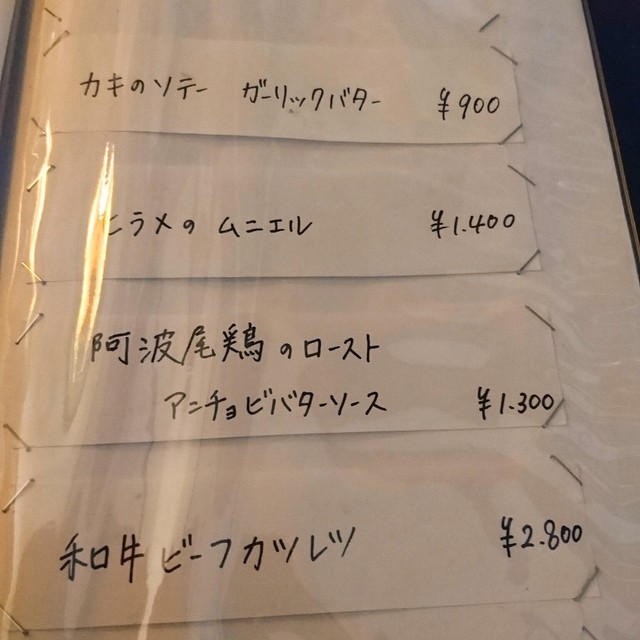 カキのソテー ガーリックバター ¥900
ヒラメの ムニエル ¥1.400
阿波尾鶏のロースト
アンチョビバターソース ¥1.300
和牛ビーフカツレツ ¥2.800